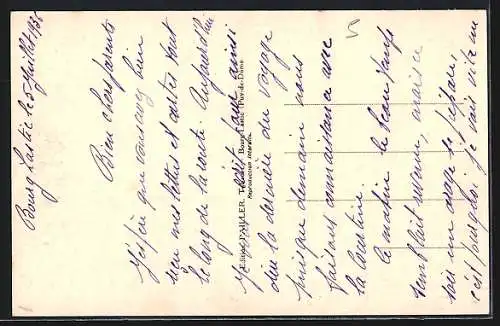 Bourg Lastic le 5 juillet 193
Bien chers parents
J'espère que vous avez bien
reçu mes lettres et cartes tout
le long de la route. Aujourd'hui
petit pour ainsi
dire la dernière du voyage
puisque demain nous
faisons connaissance avec
la Courtine.
Ce matin le beau temps
semblait revenu, mais ce
soir un orage se prépare,
c'est pourquoi je vais vite en
Edition PAILLER, Tabacs, Bourg-Lastic (Puy-de-Dôme)
Reproduction interdite